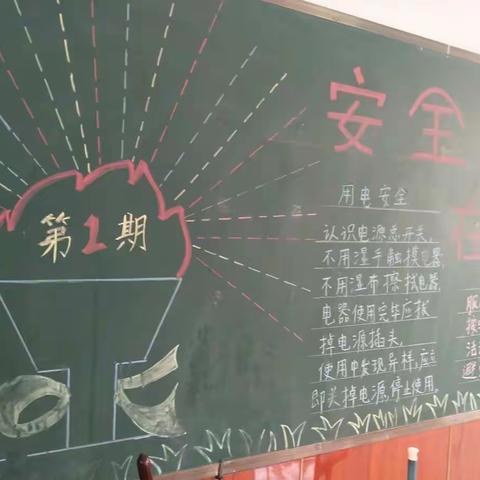 第1期
安全
用电安全
认识电源总开关,
不用湿手触摸电器,
不用湿布擦拭电器,
电器使用完毕应拔
掉电源插头,
使用中发现异样,应立
即关掉电源,停止使用。